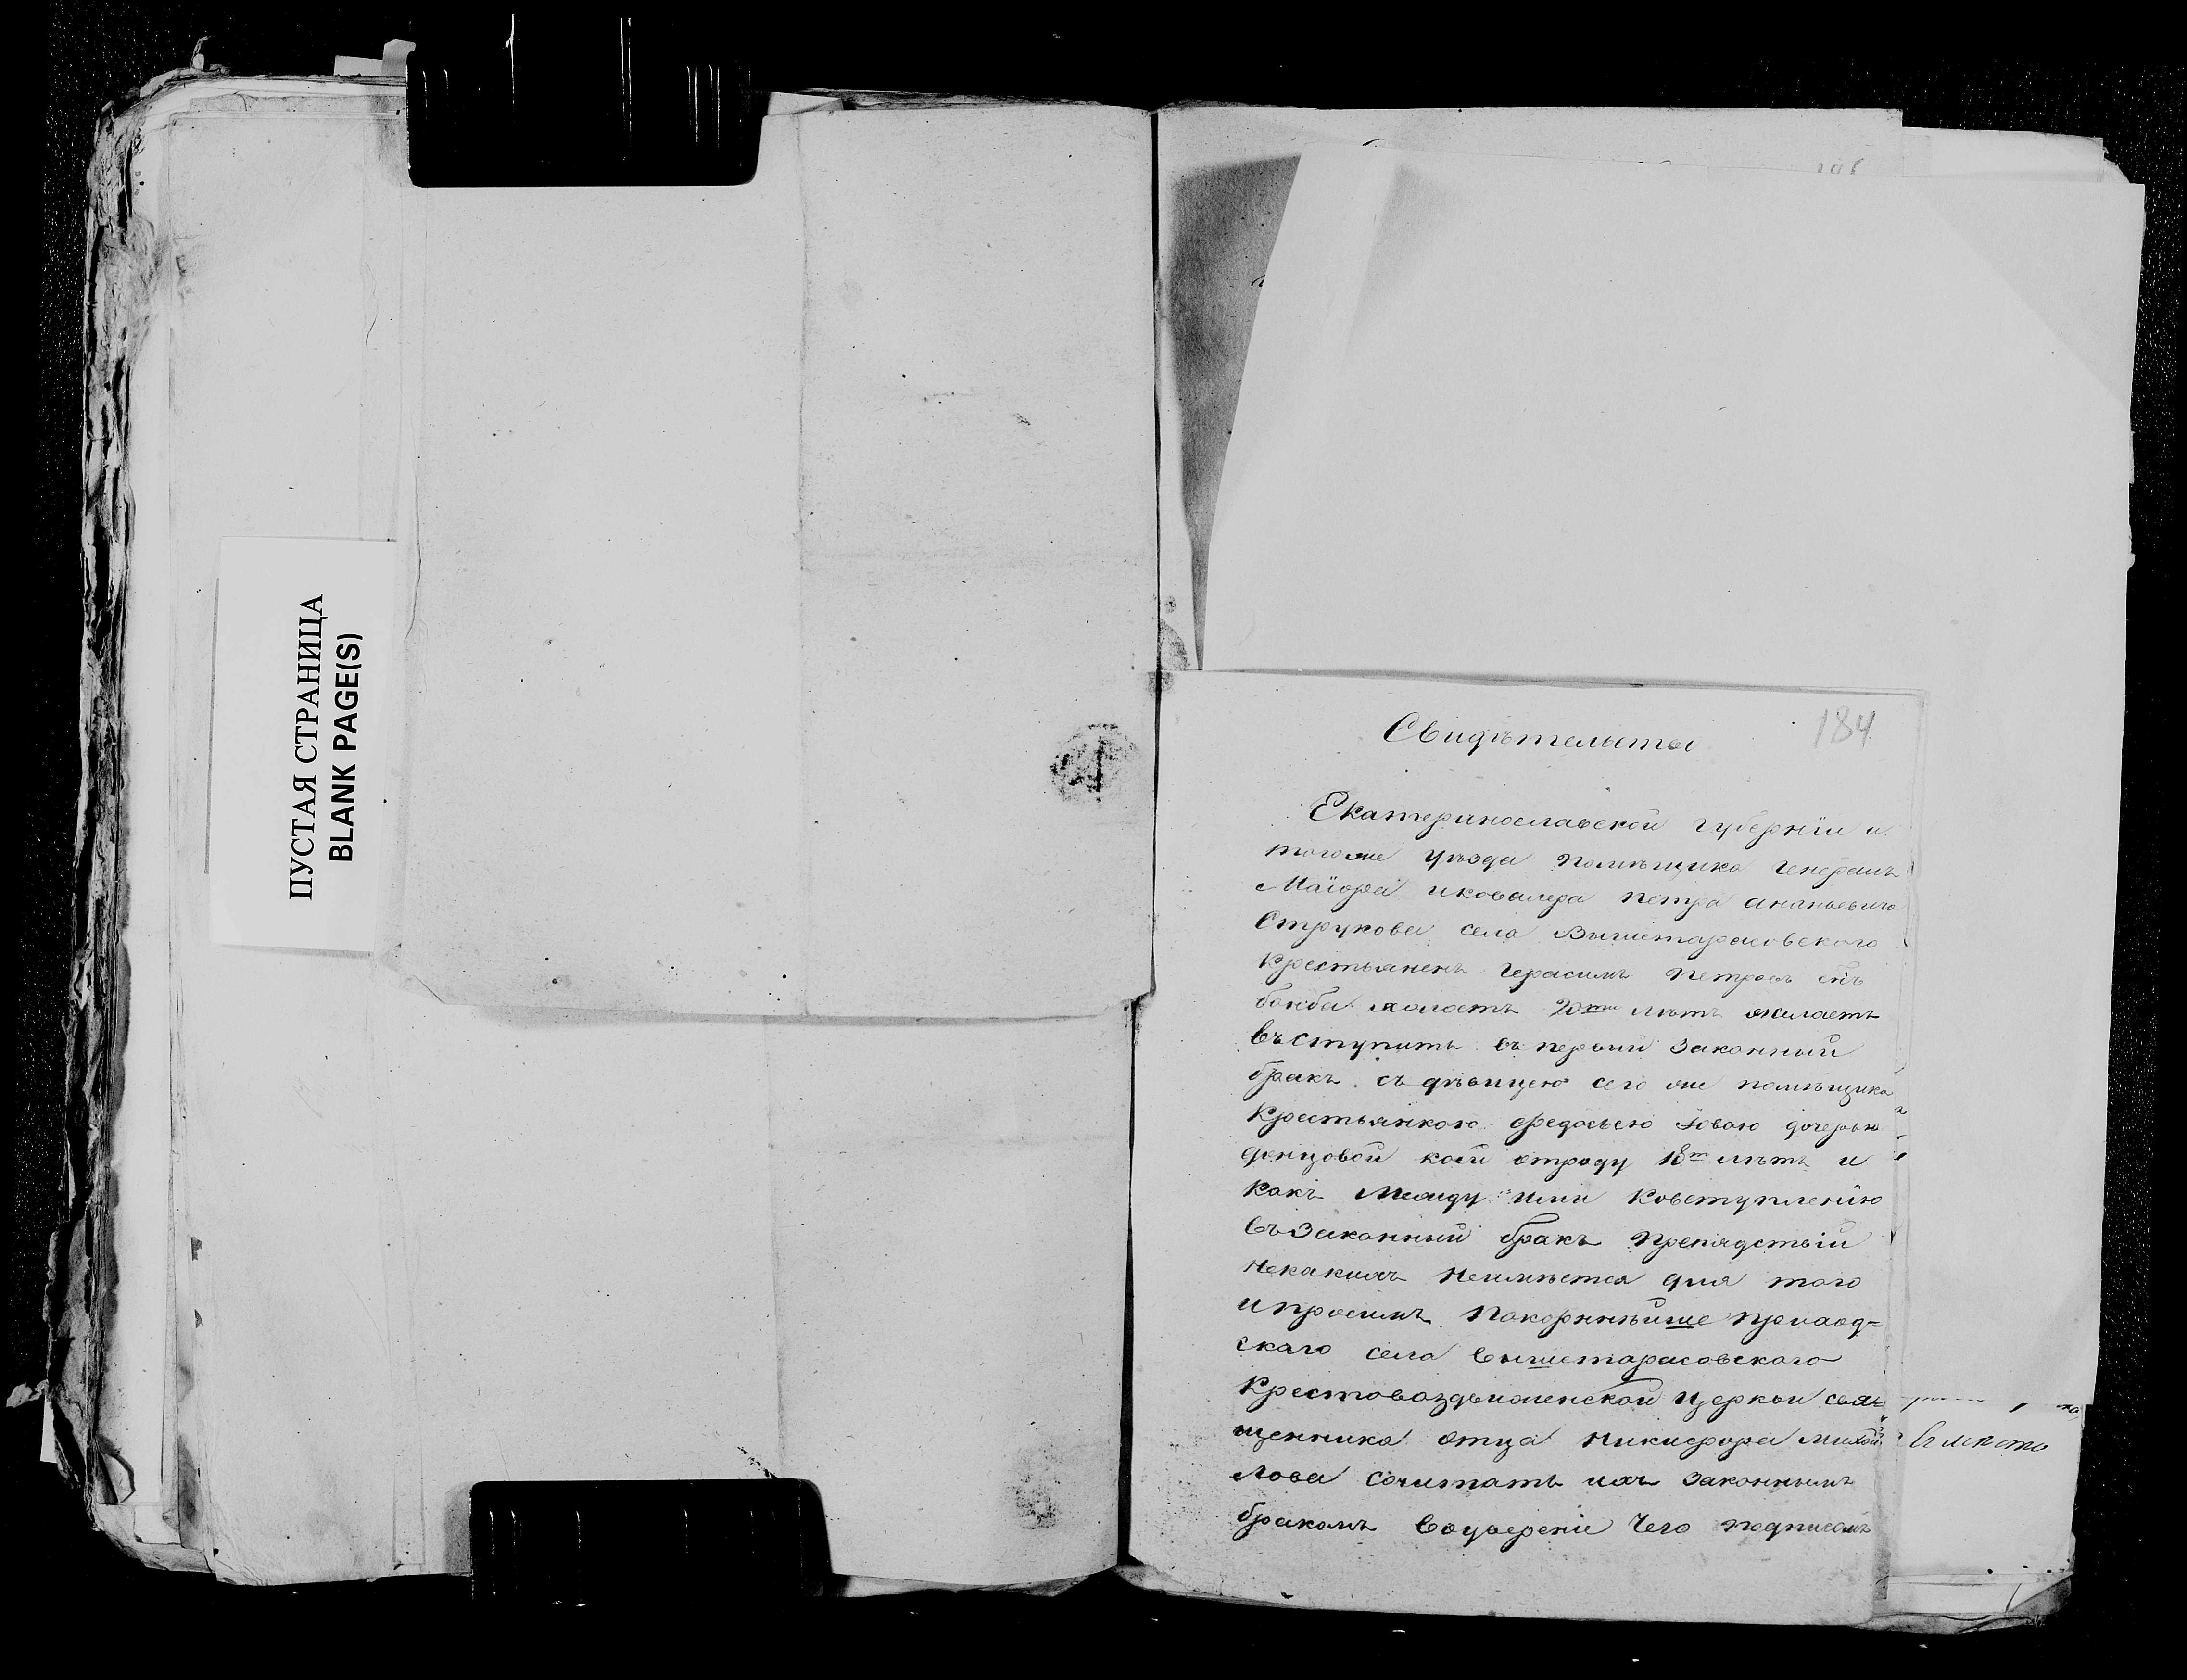 ПУСТАЯ СТРАНИЦА
BLANK PAGE(S)
184
Свидѣтельство
Екатеринославской губерніи и
тогоже уѣзда помѣщика генералъ
Маіора икавалера Петра Ананьевича
Струкова села Вышетарасовского
крестьянинъ Герасимъ Петровъ снъ
холостъ 20ти лѣтъ желаетъ
въступить въ первый законный
бракъ съ дѣвицею сего же помѣщика
Крестьянкою Федосьею Іовою дочерью
коей отроду 18т лѣтъ и
какъ между ими ковступленію
въ законный бракъ препядствій
некакихъ неимѣется для того
и просимъ покорнѣйше приход=
скаго села вышетарасовского
Крестовоздвиженской Церкви свя=
щенника отца Никифора Михай
лова сочитать ихъ законнымъ
бракомъ воуверение чего подписомъ